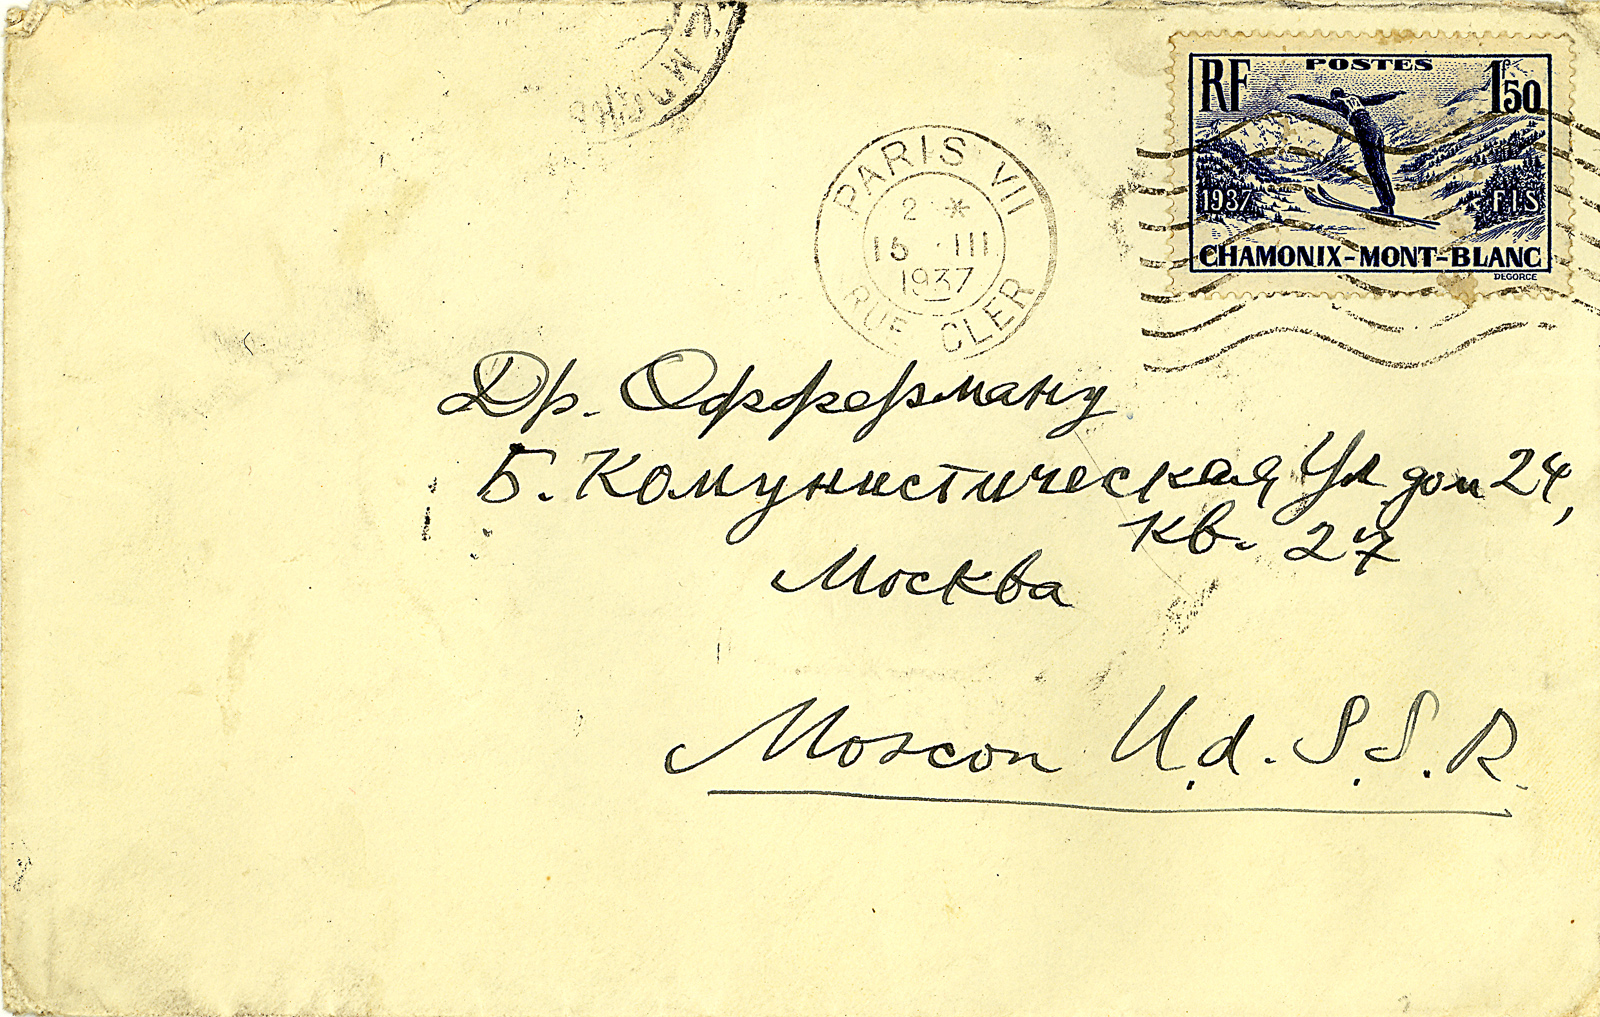 POSTES
RF 1F50
1937 FIS
CHAMONIX-MONT-BLANC
DEGORCE
PARIS VII
2 *
15 III
1937
RUE CLER
Др. Офферману
Б. Комунистическая Ул дом 24,
кв. 27
Москва
Moscou U.d.S.S.R.